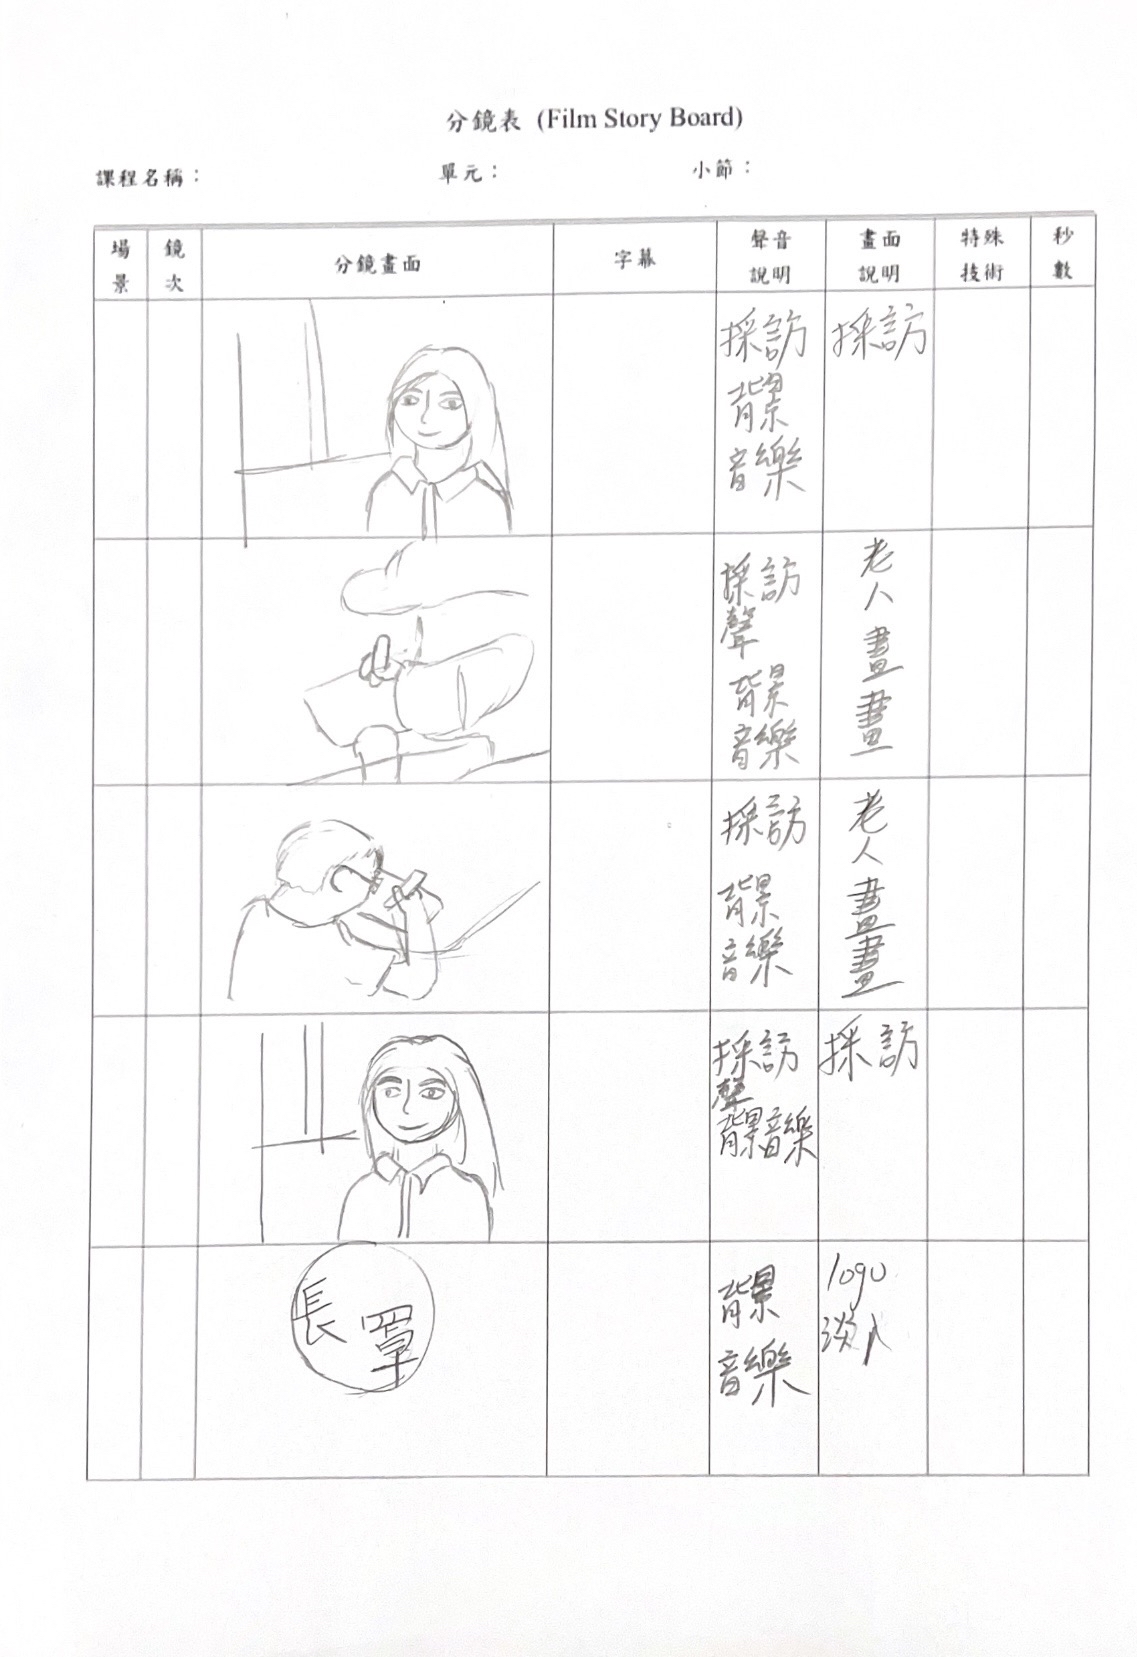 分鏡表 (Film Story Board)
課程名稱：
單元：
小節：
場景
鏡次
分鏡畫面
字幕
聲音說明
畫面說明
特殊技術
秒數
採訪
背景
音樂
採訪
採訪
聲
背景
音樂
老
人
畫
畫
採訪
背景
音樂
老
人
畫
畫
採訪
聲
背景音樂
採訪
長
罩
背景
音樂
logo
淡入